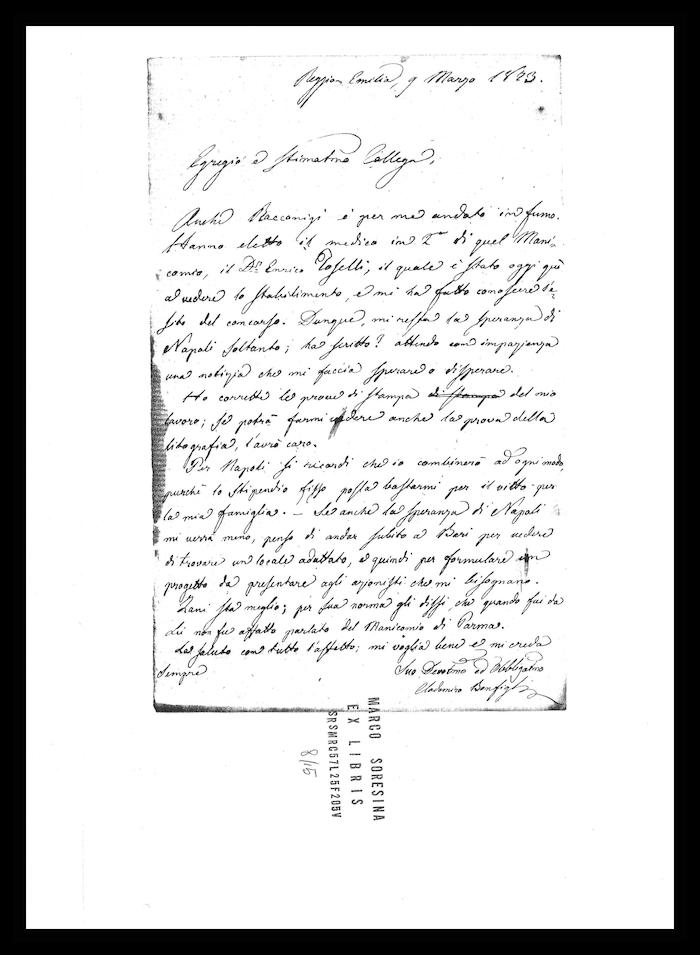 Reggio Emilia, 9 Marzo 1873.
Egregio e Stimatino Collega,
Anche Racconigi è per me andato in fumo.
Hanno eletto il medico in 2° di quel Mani-
comio, il Dr. Enrico Toselli, il quale è stato oggi quì
a vedere lo stabilimento, e mi ha fatto conoscere l'e-
sito del concorso. Dunque, mi resta la speranza di
Napoli soltanto; ha scritto? attendo con impazienza
una notizia che mi faccia sperare o disperare.
Ho corrette le prove di stampa di stampa del mio
lavoro; se potrà farmi vedere anche la prova della
litografia, l'avrò caro.
Per Napoli si ricordi che io combinerò ad ogni modo,
purchè lo stipendio fisso possa bastarmi per il vitto per
la mia famiglia. – Se anche la speranza di Napoli
mi verrà meno, penso di andar subito a Bari per vedere
di trovare un locale adattato, e quindi per formulare un
progetto da presentare agli azionisti che mi bisognano.
Zani sta meglio; per sua norma gli dissi, che quando fui da
Lei non fu affatto parlato del Manicomio di Parma.
La saluto con tutto l'affetto; mi voglia bene e mi creda
sempre
Suo Devotmo ed Obbligatmo
Clodomiro Bonfigli
MARCO SORESINA
EX LIBRIS
SRSMRC57L25F205V
8/15